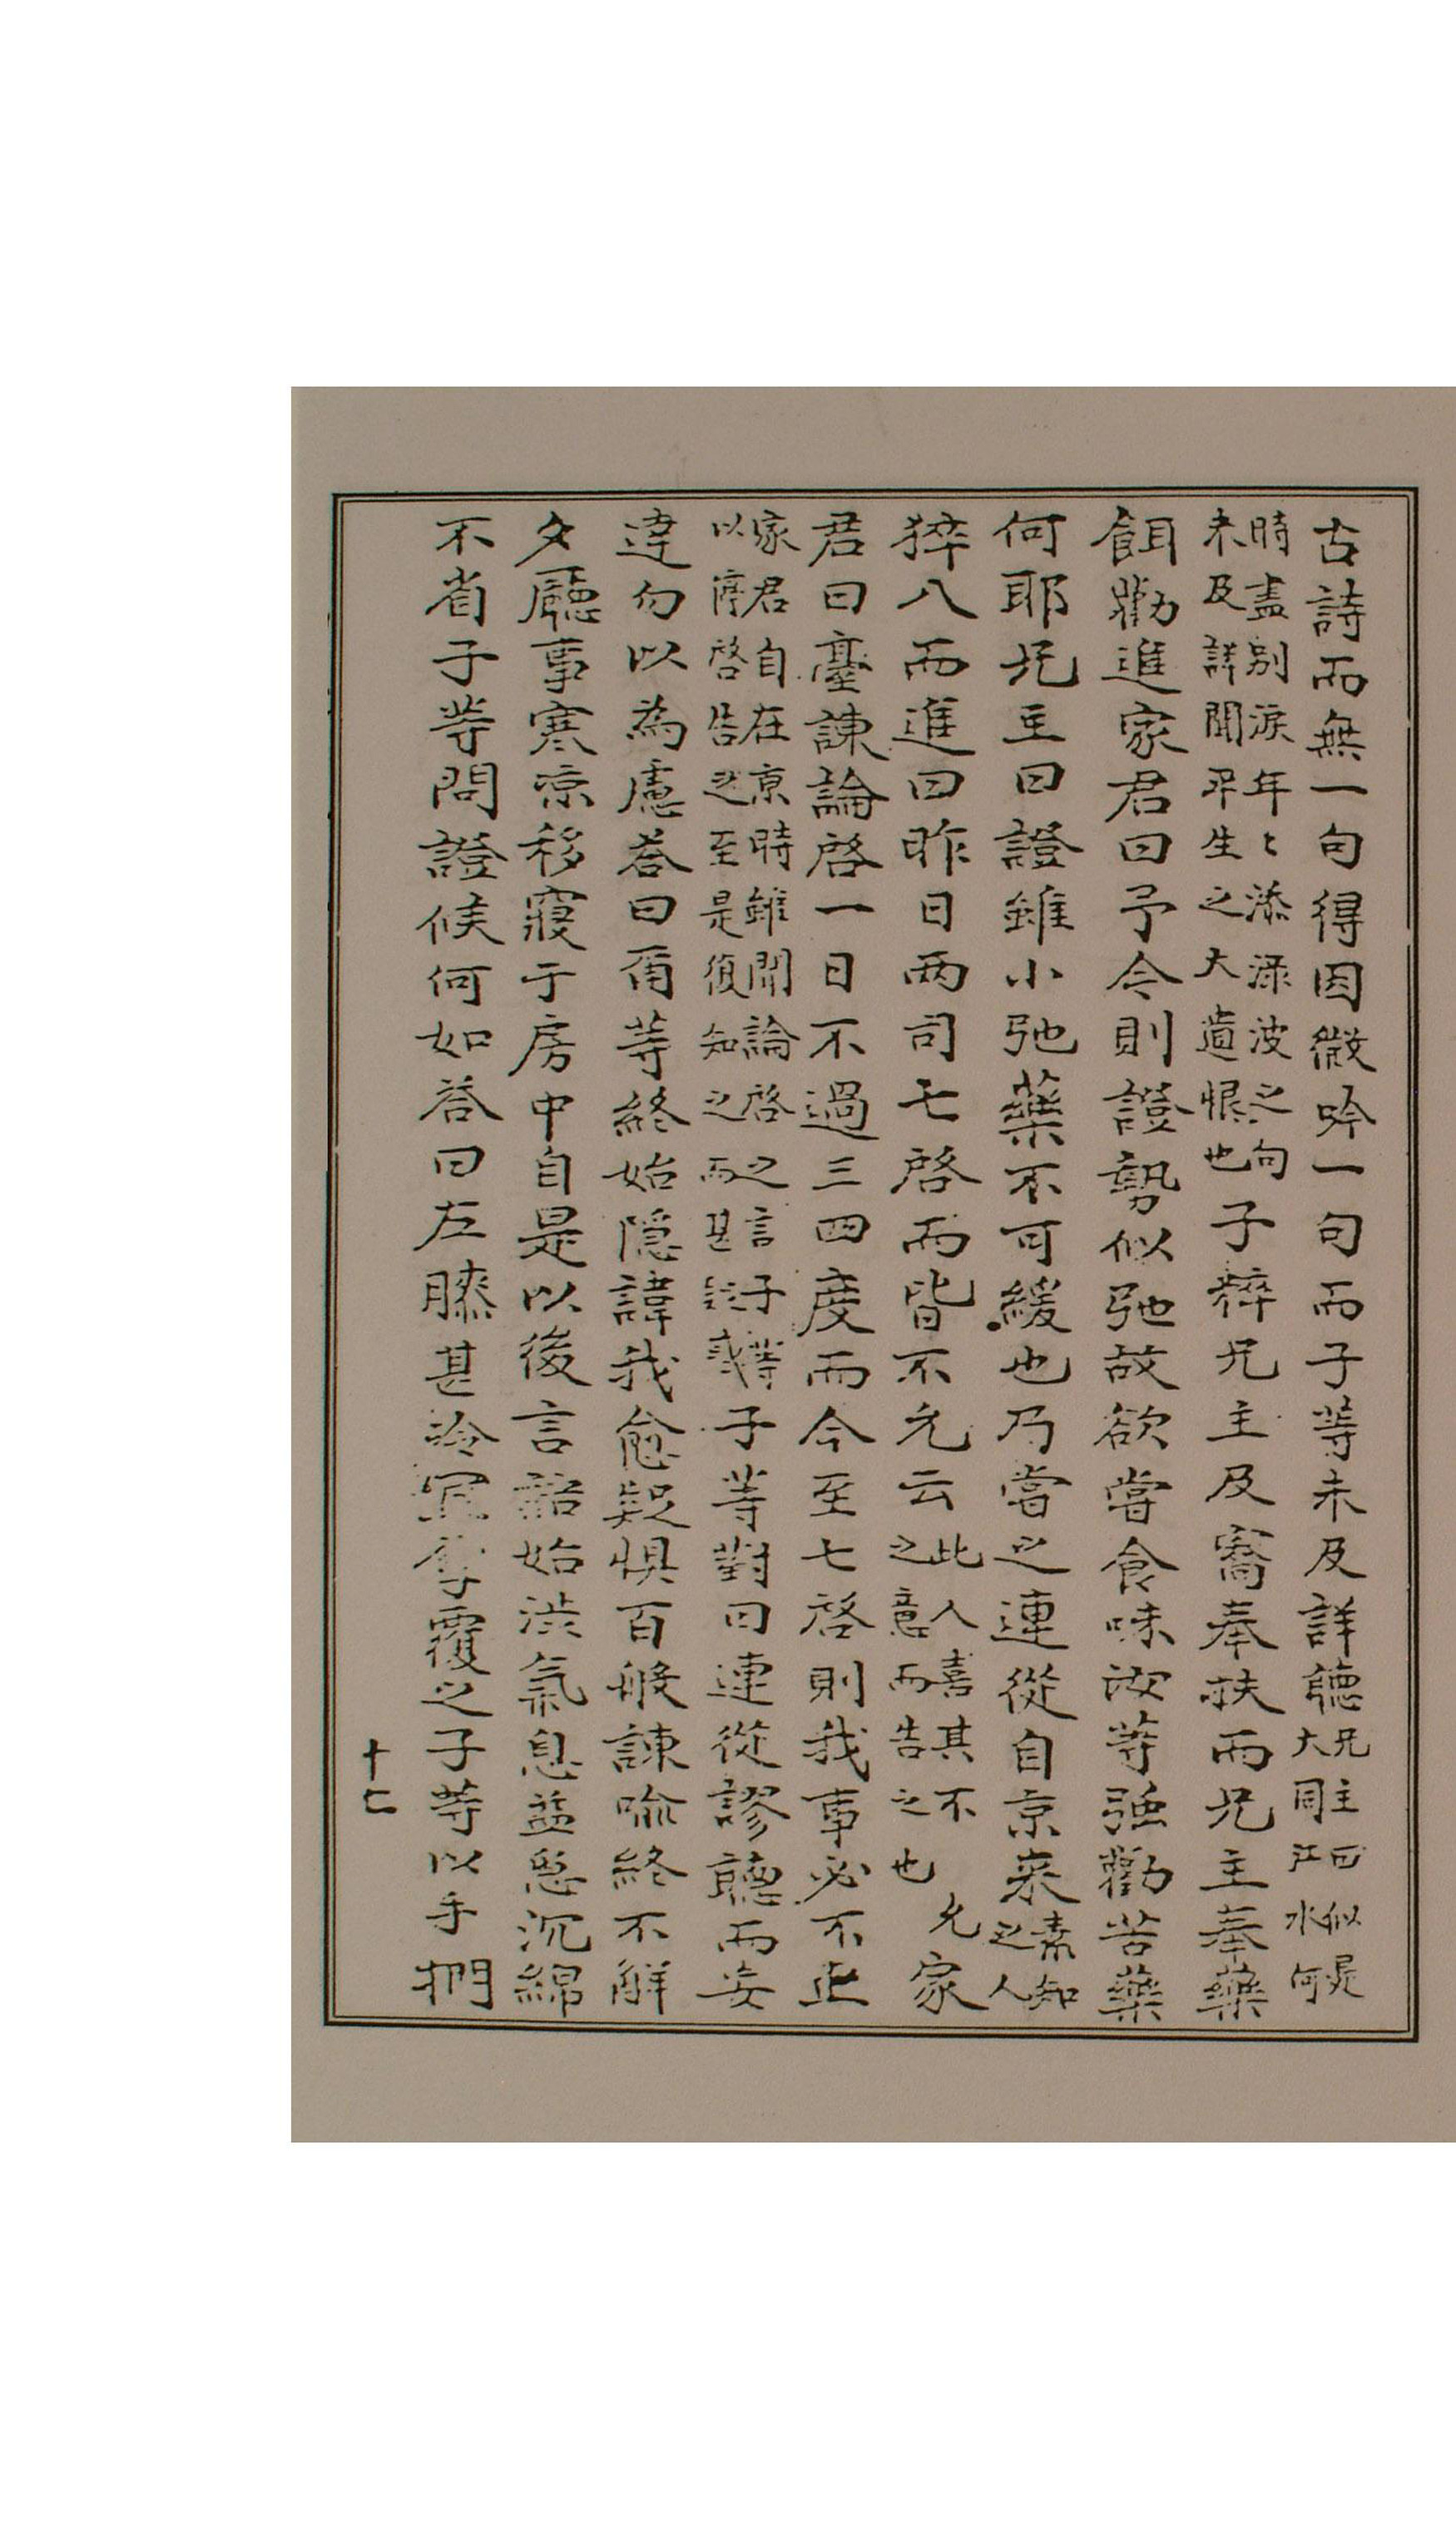 古詩而無一句得因微吟一句而子等未及詳聽兄主曰似是大同江水何
時盡別淚年〻添淥波之句未及詳聞平生之大遺恨也子粹兄主及喬奉扶而兄主奉藥
餌勸進家君曰予今則證勢似弛故欲嘗食味汝等强勸苦藥
何耶兄主曰證雖小弛藥不可緩也乃嘗之連從自京來素知之人
猝八而進曰昨日兩司七啓而皆不允云此人喜其不允之意而告之也家
君曰臺諫論啓一日不過三四度而今至七啓則我事必不止
家君自在京時雖聞論啓之言子等以停啓告之至是復知之而甚疑惑子等對曰連從謬聽而妄
違勿以為慮答曰爾等終始隱諱我愈疑惧百般諫喩終不解
夕廳事寒凉移寢于房中自是以後言語始澁氣息益急沉綿
不省子等問證候何如答曰左膝甚冷宜厚覆之子等以手捫
十七